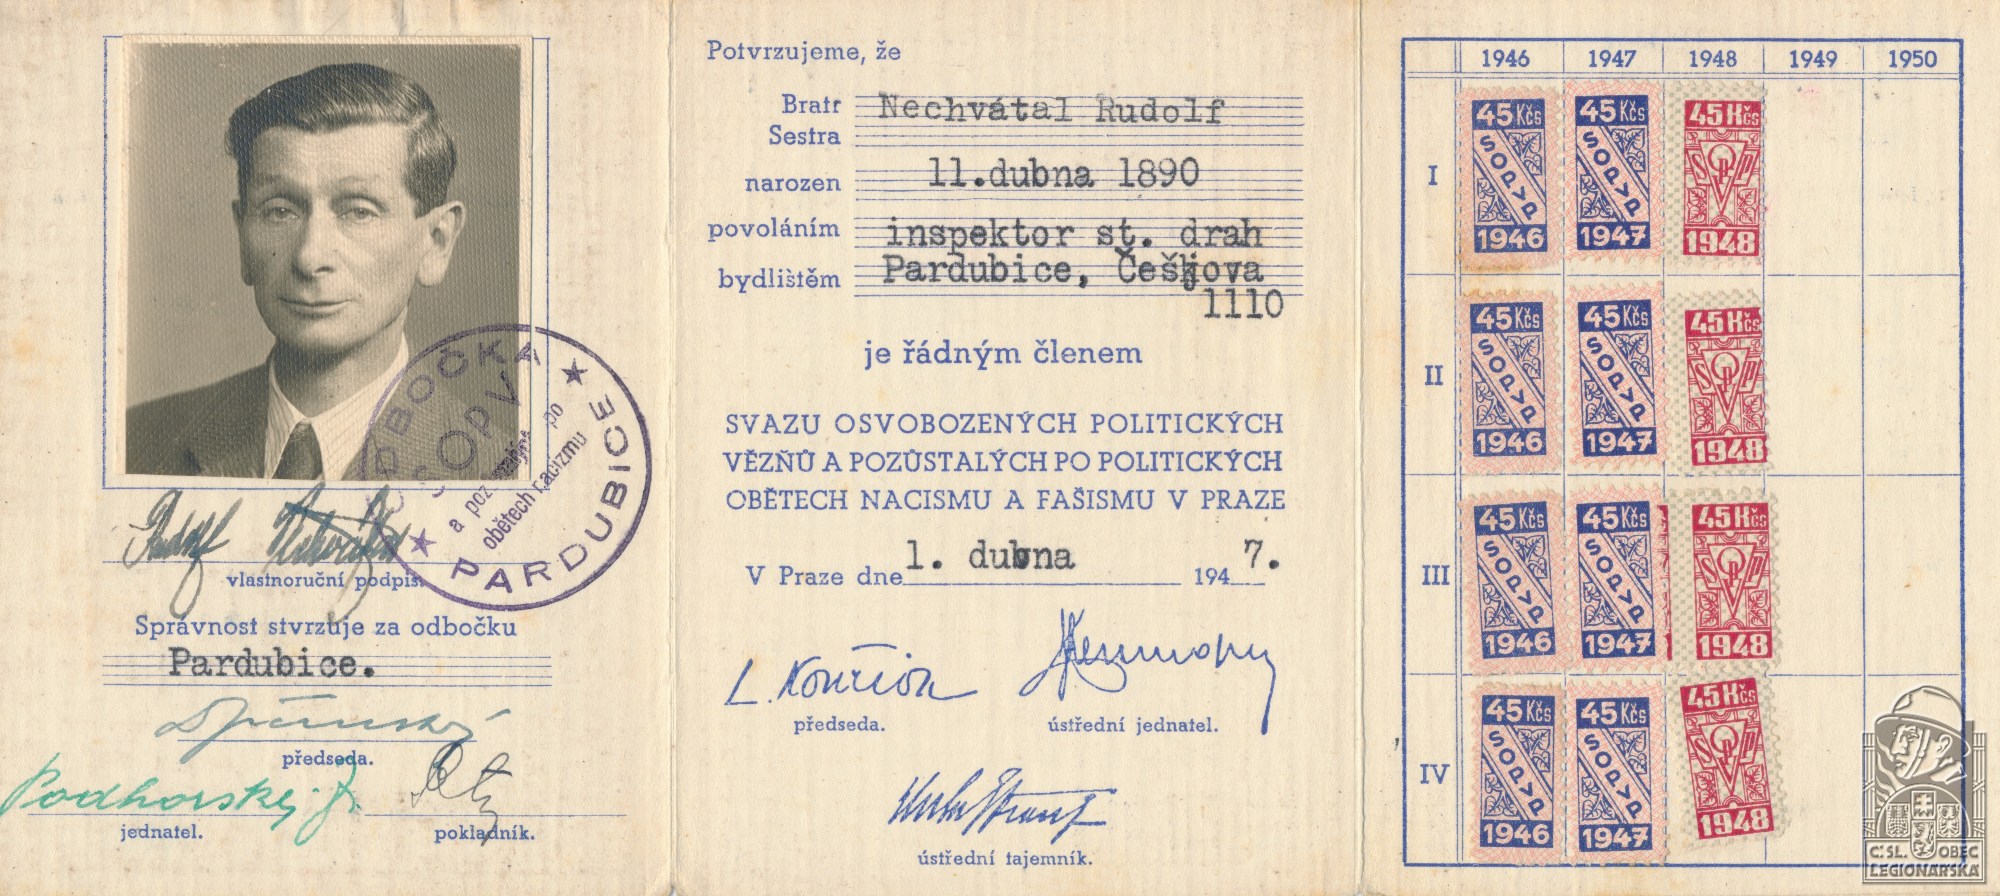 ODBOČKA
SOPV
a pozůstalých po
obětech nacizmu
PARDUBICE
vlastnoruční podpis.
Správnost stvrzuje za odbočku
Pardubice.
předseda.
Podhorský J.
jednatel.
pokladník.
Potvrzujeme, že
Bratr Nechvátal Rudolf
Sestra
narozen 11.dubna 1890
povoláním inspektor st. drah
bydlištěm Pardubice,
1110
je řádným členem
SVAZU OSVOBOZENÝCH POLITICKÝCH
VĚZŇŮ A POZŮSTALÝCH PO POLITICKÝCH
OBĚTECH NACISMU A FAŠISMU V PRAZE
V Praze dne 1. dubna 1947.
předseda.
ústřední jednatel.
ústřední tajemník.
1946 1947 1948 1949 1950
I
45 Kčs 45 Kčs 45 Kčs
SOPVP SOPVP SPVP
1946 1947 1948
II
45 Kčs 45 Kčs 45 Kčs
SOPVP SOPVP SPVP
1946 1947 1948
III
45 Kčs 45 Kčs 45 Kčs
SOPVP SOPVP SPVP
1946 1947 1948
IV
45 Kčs 45 Kčs 45 Kčs
SOPVP SOPVP SPVP
1946 1947 1948
ČSL. OBEC
LEGIONÁŘSKÁ